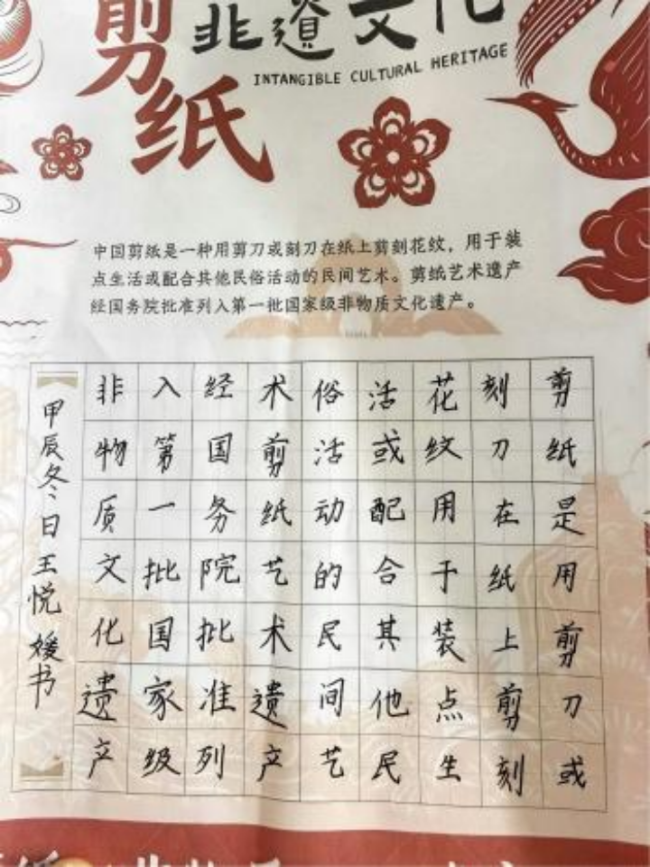 剪纸
非遺文化
INTANGIBLE CULTURAL HERITAGE
中国剪纸是一种用剪刀或刻刀在纸上剪刻花纹，用于装
点生活或配合其他民俗活动的民间艺术。剪纸艺术遗产
经国务院批准列入第一批国家级非物质文化遗产。
剪纸是用剪刀或
刻刀在纸上剪刻
花纹用于装点生
活或配合其他民
俗活动的民间艺
术剪纸艺术遗产
经国务院批准列
入第一批国家级
非物质文化遗产
甲辰冬日王悦媛书